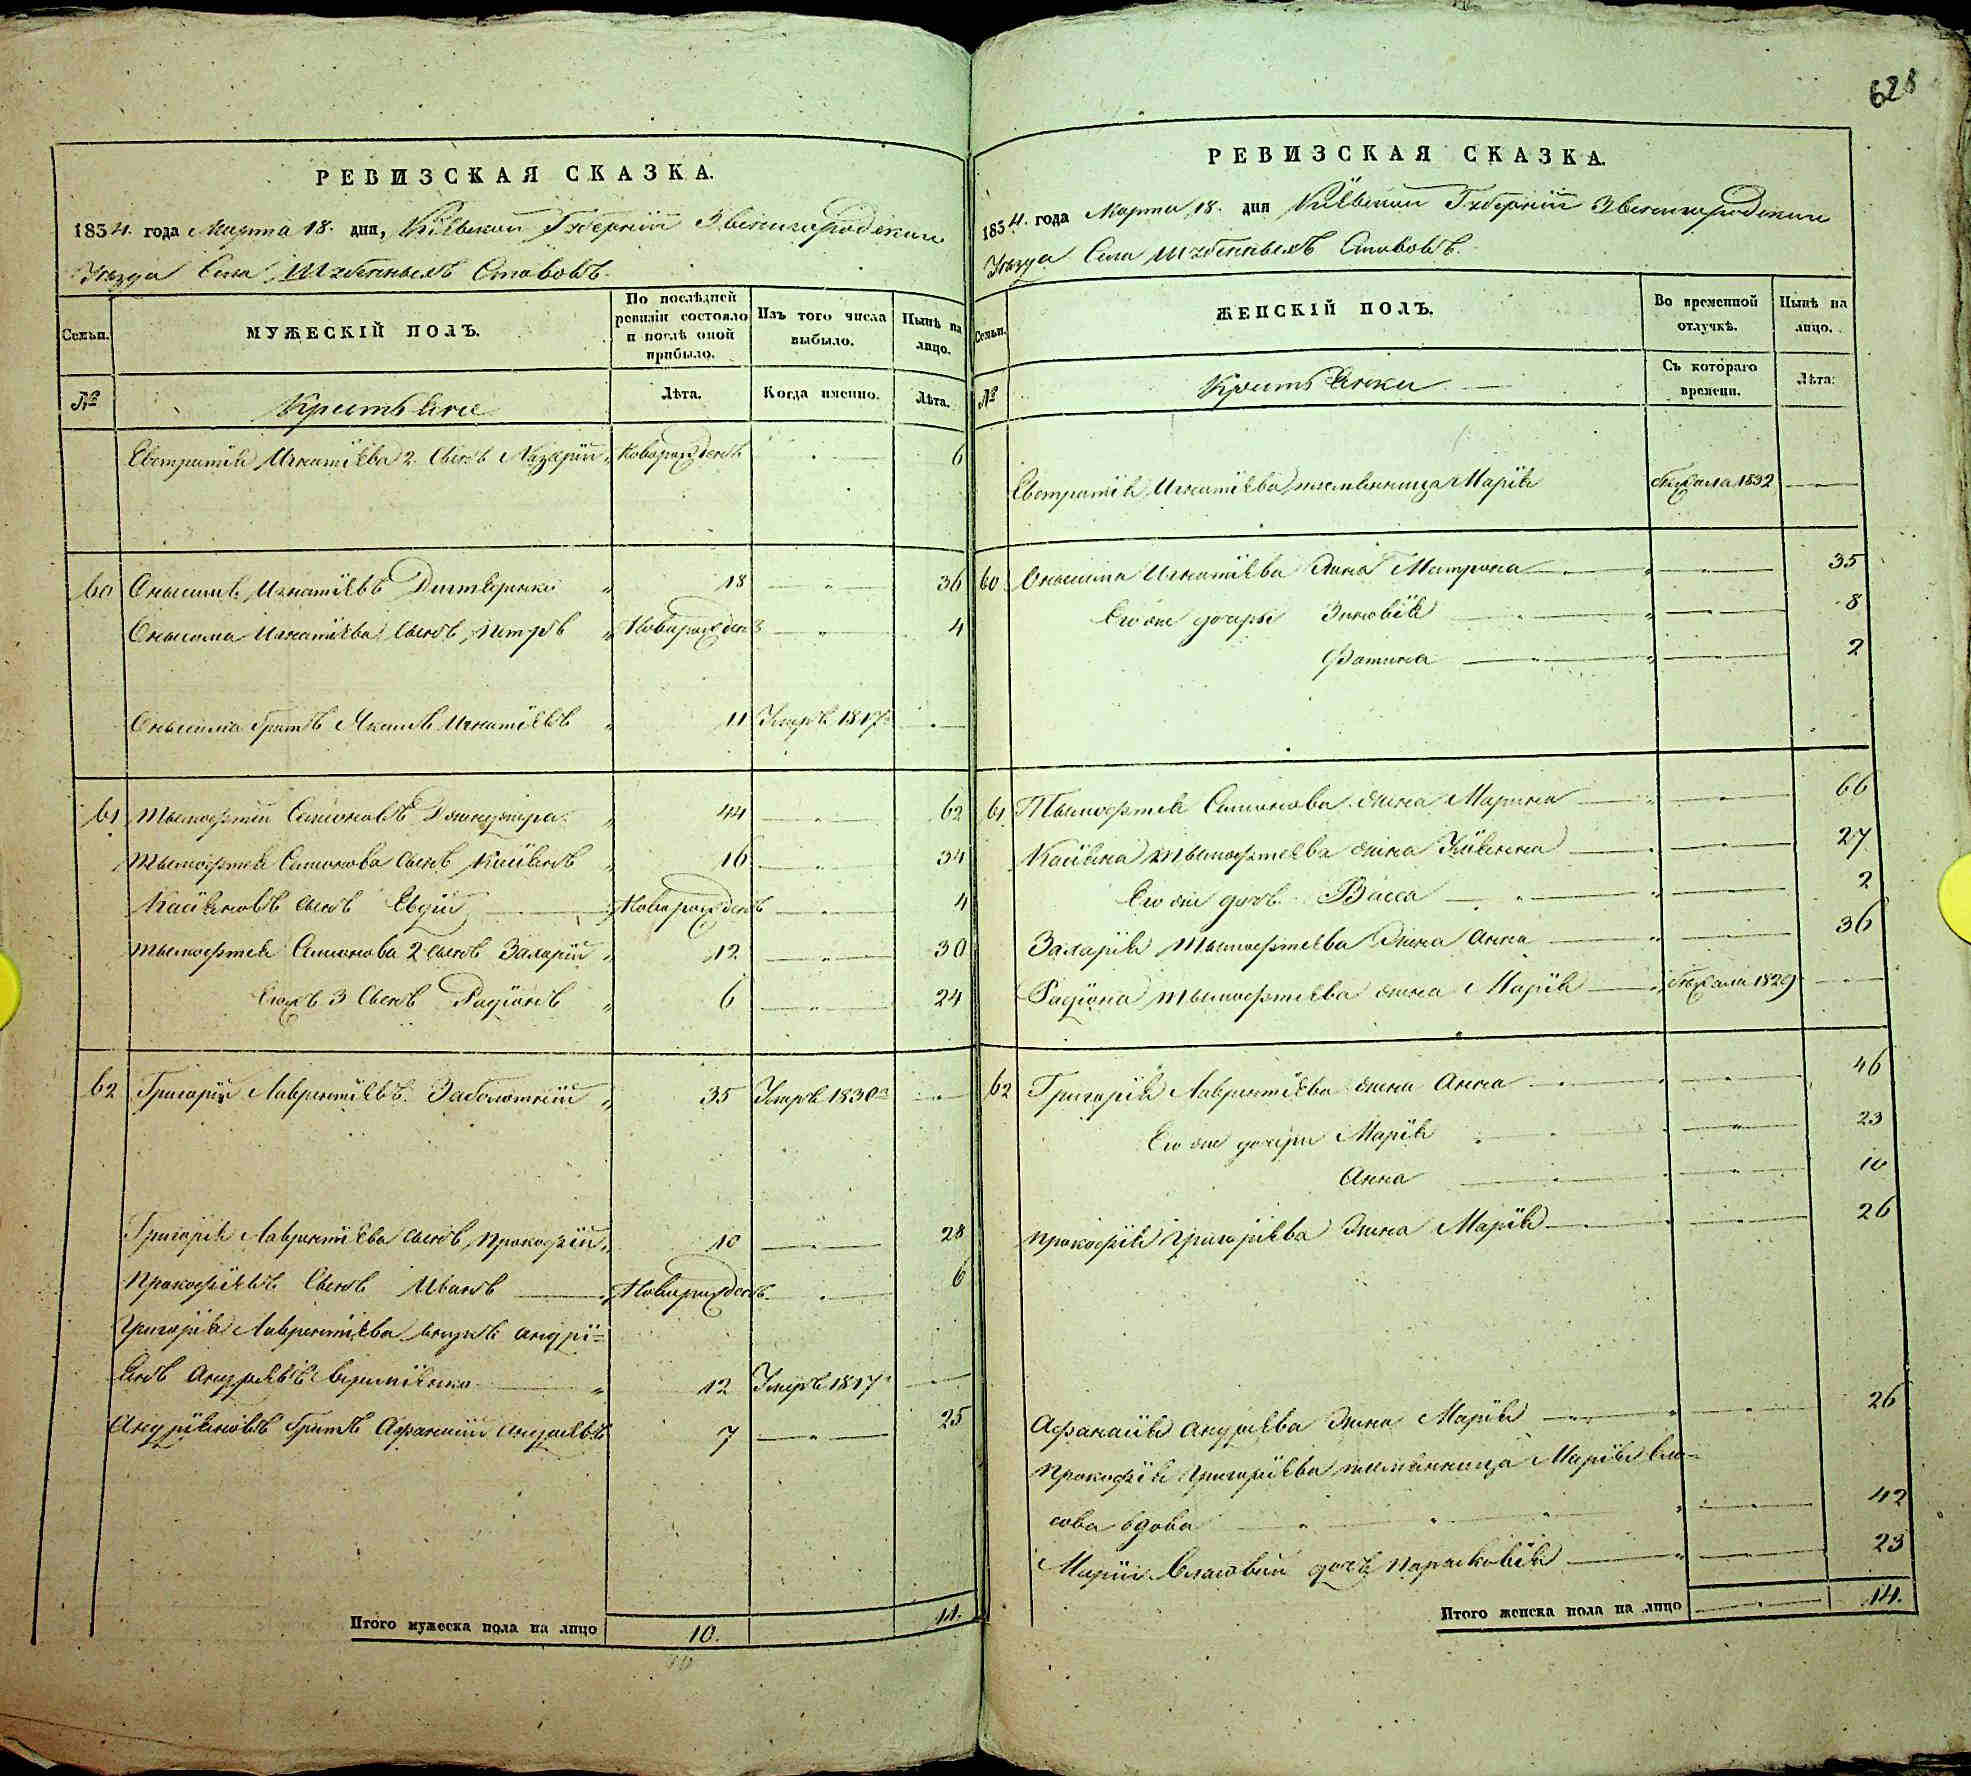 628
РЕВИЗСКАЯ СКАЗКА.
1834 года Марта 18. дня, Кіевской Губерніи Звенигородскаго
Уѣзда Села Шубенныхъ Ставовъ.
Семьи.
МУЖЕСКІЙ ПОЛЪ.
По послѣдней ревизіи состояло и послѣ оной прибыло.
Изъ того числа выбыло.
Нынѣ на лицо.
№
Крестьяне
Лѣта.
Когда именно.
Лѣта.
Евстратія Игнатіева 2. сынъ Назарій новорожденъ 6
60 Онысимъ Игнатіевъ 18 36
Онысима Игнатіева сынъ Петръ новорожденъ 4
Онысима братъ Якимъ Игнатіевъ 11 Умръ 1817
61 Тымофтей Семіоновъ 44 62
Тымофтея Семионова сынъ Касіянъ 16 34
Касіяновъ сынъ Евдій новорожденъ 4
Тымофтея Семионова 2 сынъ Захарій 12 30
Егожъ 3 сынъ Радіонъ 6 24
62 Григорій Лаврентіевъ Заболотній 35 Умръ 1830
Григорія Лаврентіева сынъ Прокофій 10 28
Прокофіевъ сынъ Иванъ новорожденъ 6
Григорія Лаврентіева внукъ Андрі=
янъ Андреевъ 12 Умръ 1817
Андріяновъ братъ Афанасій Андреевъ 7 25
Итого мужеска пола на лицо 10. 11.
10
РЕВИЗСКАЯ СКАЗКА.
1834 года Марта 18. дня Кіевской Губерніи Звенигородскаго
Уѣзда Села Шубенныхъ Ставовъ.
Семьи.
ЖЕНСКІЙ ПОЛЪ.
Во временной отлучкѣ.
Нынѣ на лицо.
№
Крестьянки
Съ котораго времени.
Лѣта.
Евстратія Игнатіева племянница Марія бѣжала 1832
60 Онысима Игнатіева жена Матрона 35
Его же дочери Зиновія 8
Фатина 2
61 Тымофтея Семионова жена Марина 66
Касіяна Тымофтеева жена Уліянна 27
Его же дочь Васса 2
Захарія Тымофтеева жена Анна 36
Радіона Тымофтеева жена Марія бѣжала 1829
62 Григорія Лаврентіева жена Анна 46
Его же дочери Марія 23
Анна 10
Прокофія Григоріева жена Марія 26
Афанасія Андреева жена Марія 26
Прокофія Григоріева племянница Марія Вла=
сова вдова 42
Маріи Власовой дочь Парасковія 23
Итого женска пола на лицо 14.